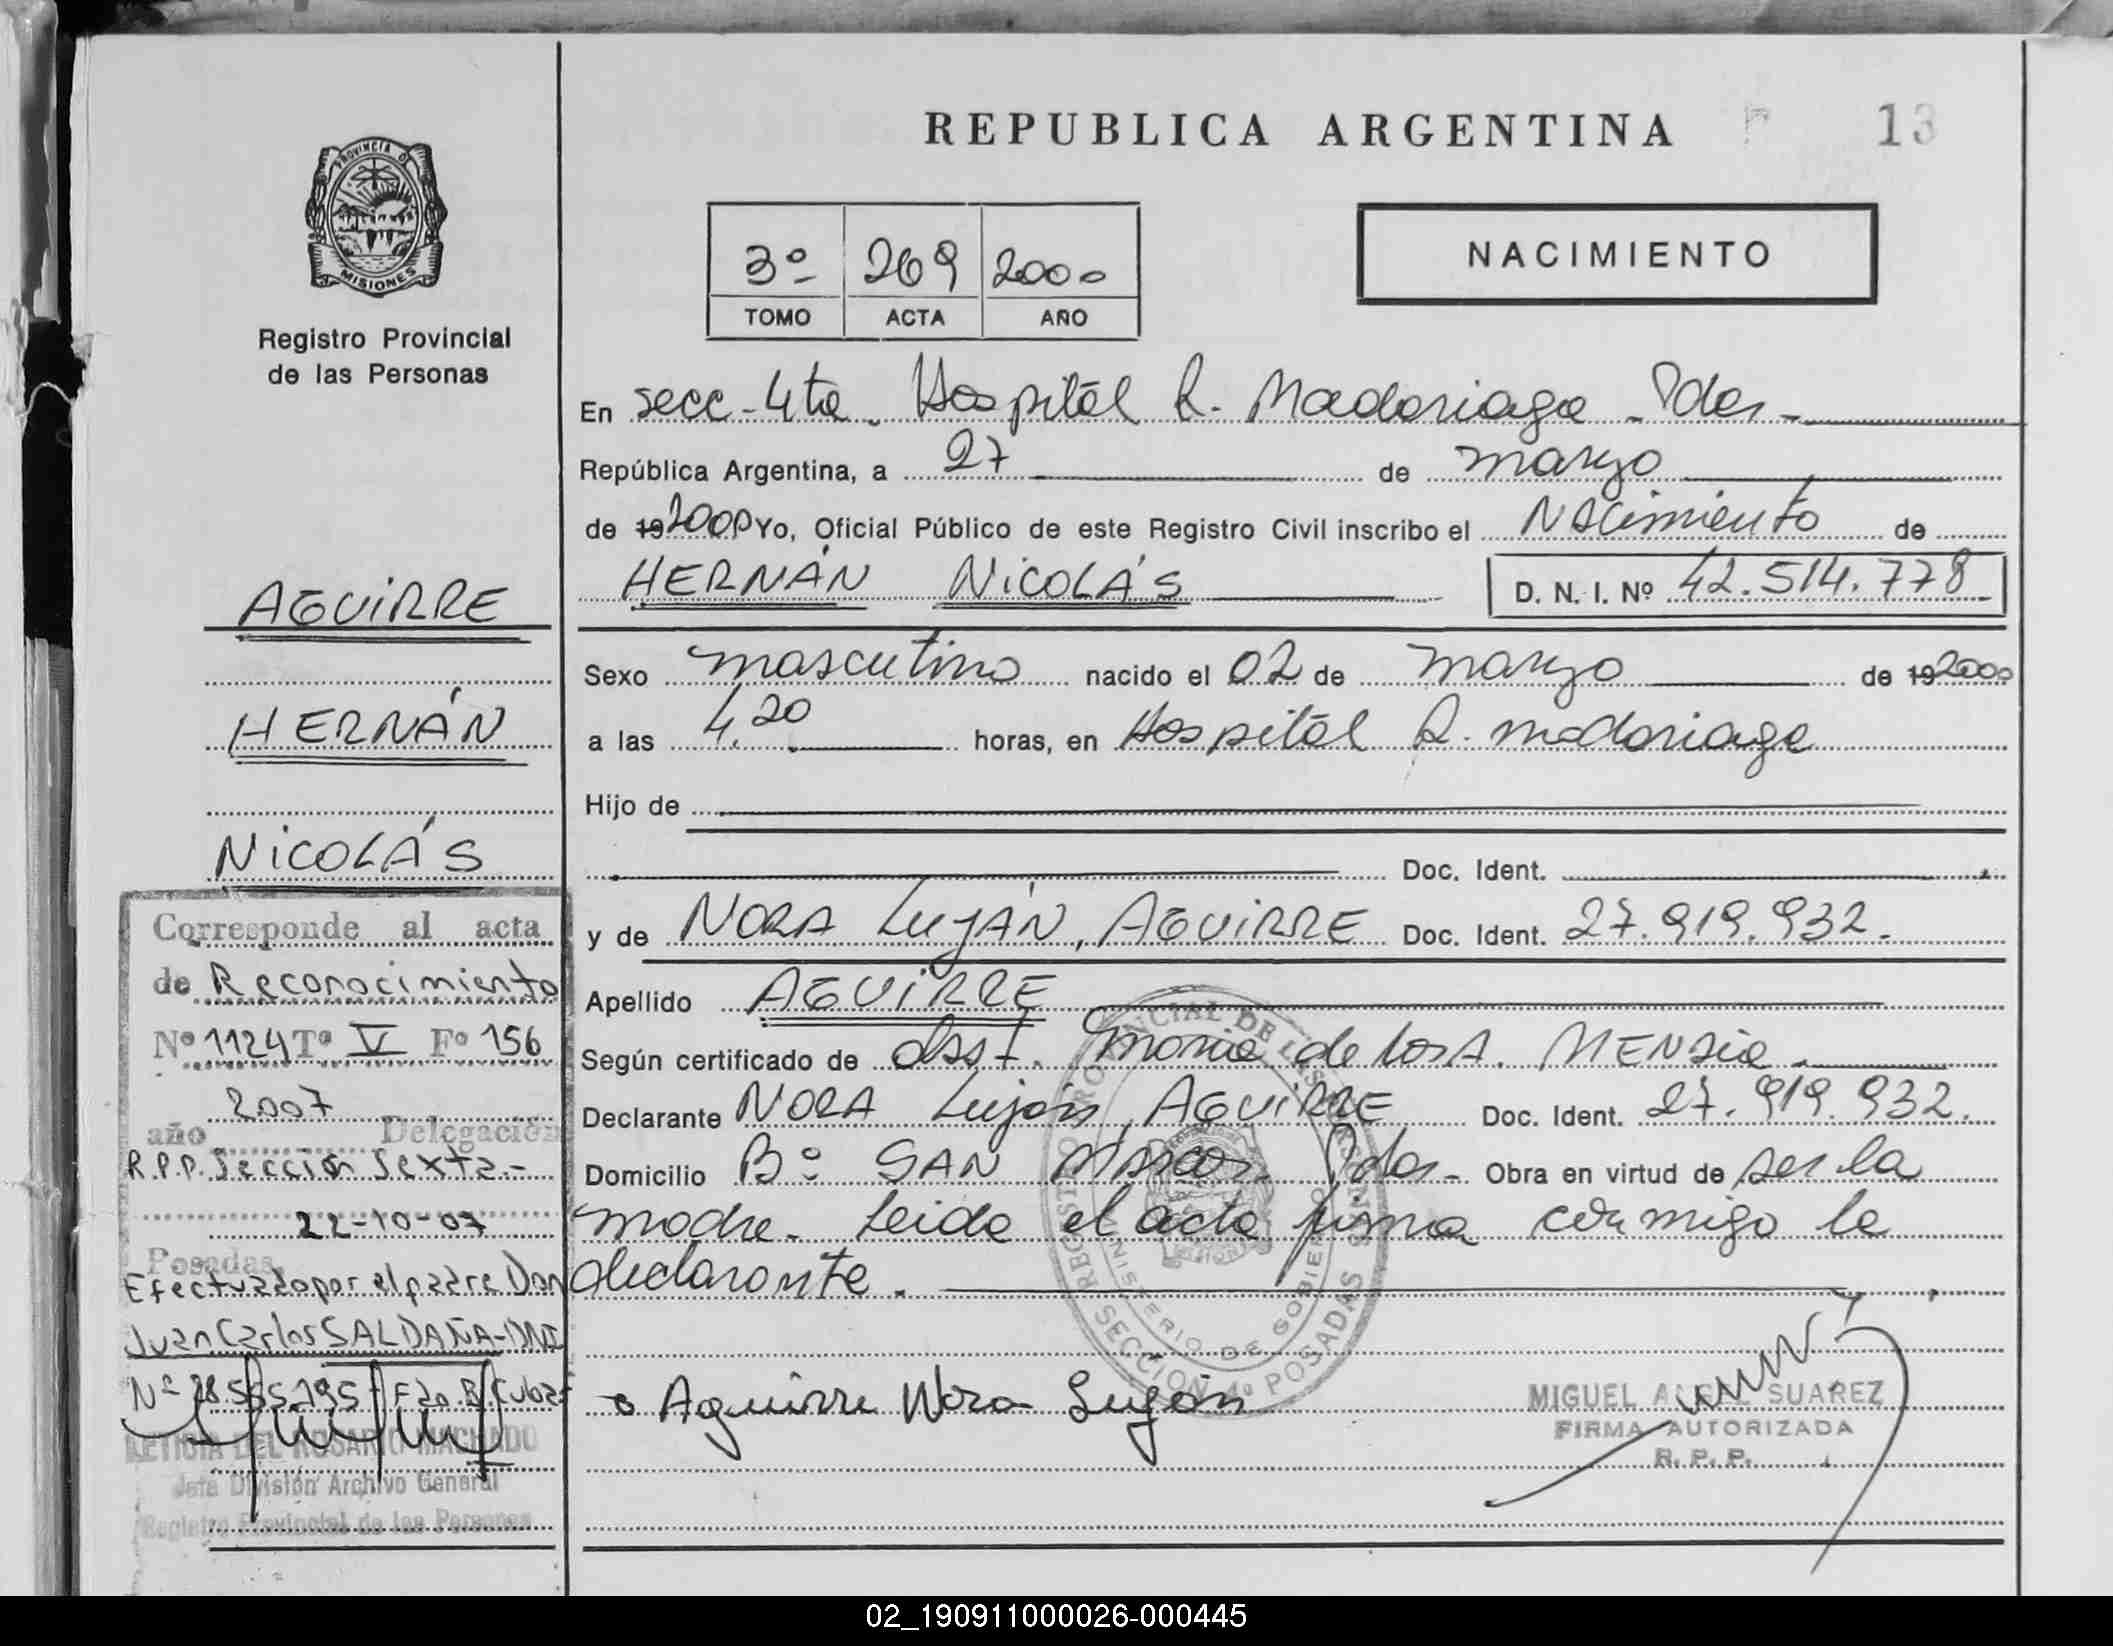 REPUBLICA ARGENTINA
13
PROVINCIA D
MISIONES
Registro Provincial
de las Personas
3º 269 2000
TOMO ACTA AÑO
NACIMIENTO
En secc. 4ta. Hospital R. Madariaga - Pdas -
República Argentina, a 27 de marzo
de 19 2000 Yo, Oficial Público de este Registro Civil inscribo el Nacimiento de
HERNÁN NICOLÁS D. N. I. Nº 42.514.778
Sexo masculino nacido el 02 de marzo de 19 2000
a las 4,20 horas, en Hospital R. Madariaga
Hijo de
Doc. Ident.
y de NORA LUJÁN, AGUIRRE Doc. Ident. 27.919.932.
Apellido AGUIRRE
Según certificado de Obst. Maria de los A. MENSIA.
Declarante NORA Luján, AGUIRRE Doc. Ident. 27.919.932.
Domicilio Bº SAN Marcos Pdas - Obra en virtud de ser la
madre. Leida el acta firma conmigo la
declarante.
Aguirre Nora Luján
MIGUEL ANGEL SUAREZ
FIRMA AUTORIZADA
R. P. P.
REGISTRO PROVINCIAL DE LAS PERSONAS
MINISTERIO DE GOBIERNO
SECCION 4º POSADAS
AGUIRRE
HERNÁN
NICOLÁS
Corresponde al acta
de Reconocimiento
Nº 1124 Tº V Fº 156
año 2007 Delegación
R.P.P. Sección Sexta.-
Posadas, 22-10-07
Efectuado por el padre Don
Juan Carlos SALDAÑA-DNI
Nº 28.565.795
LETICIA DEL ROSARIO MACHADO
Jefa División Archivo General
Registro Provincial de las Personas
02_190911000026-000445